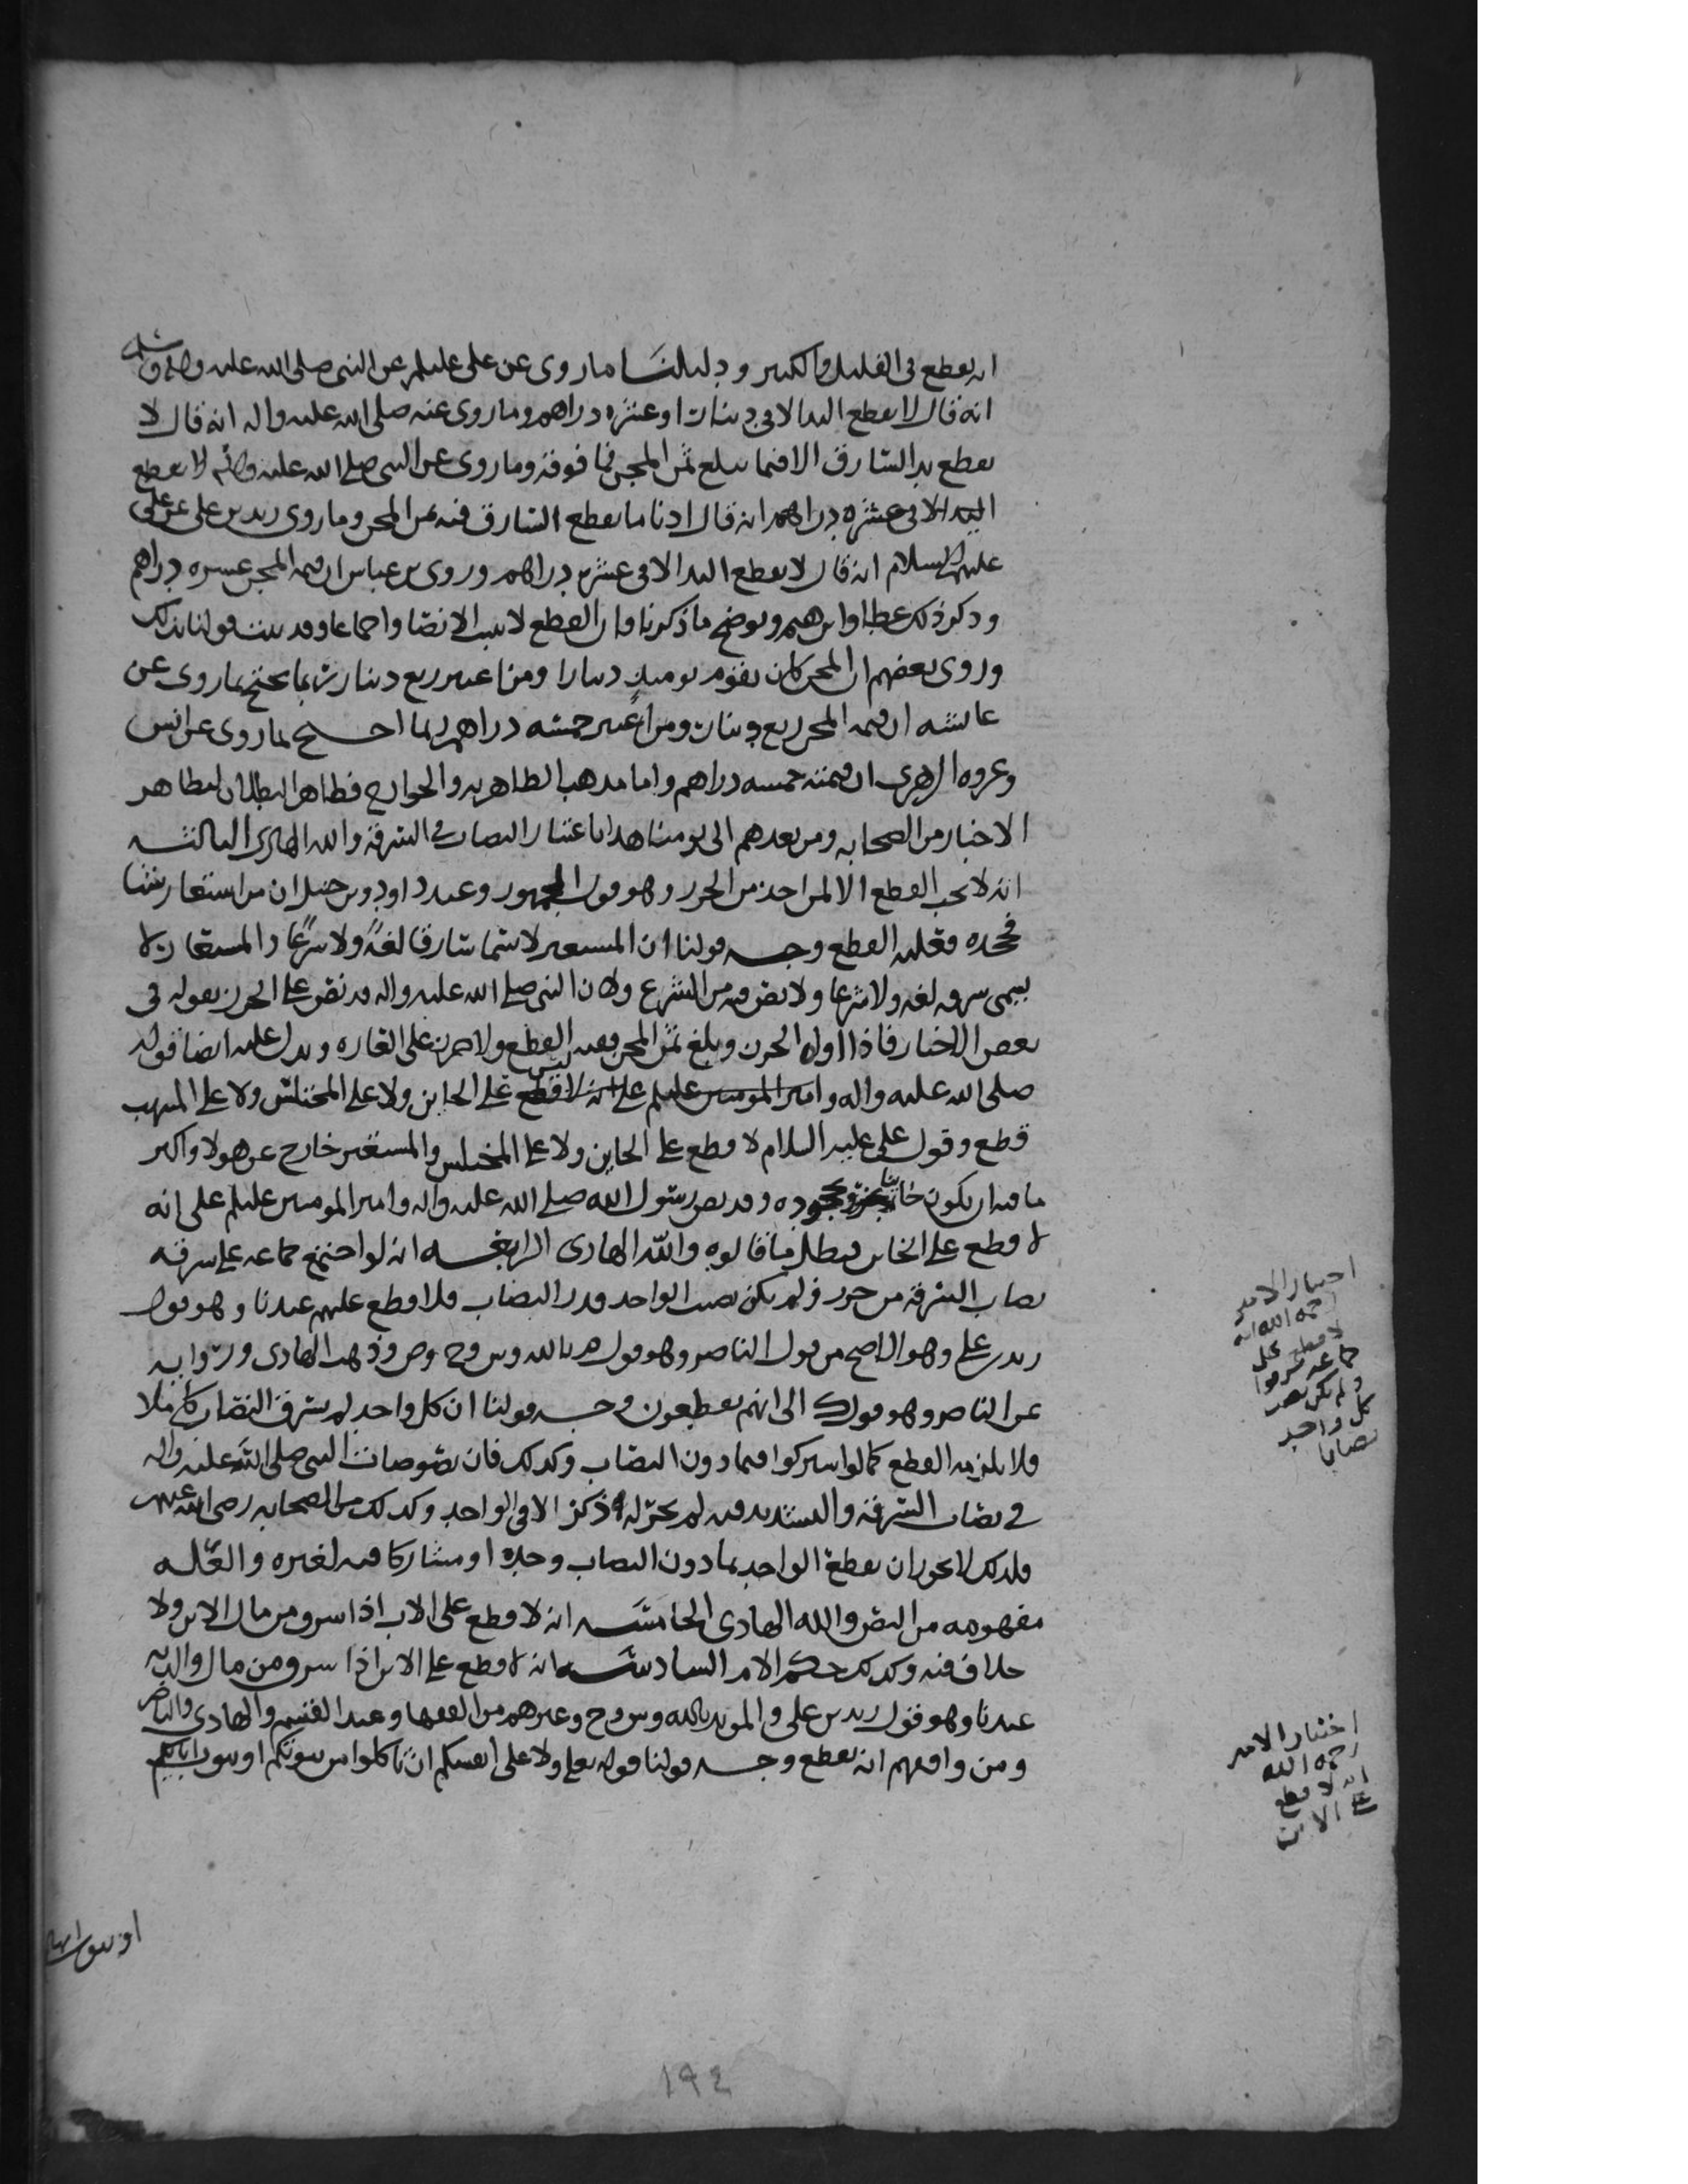 انه يقطع في القليل والكثير ودليلنا ما روى عن علي عليلم عن النبي صلى الله عليه وآله وسلم
انه قال لا يقطع اليد الا في دينار او عشره دراهم وما روى عنه صلى الله عليه واله انه قال لا
يقطع يد السارق الا فيما يبلغ ثمن المجن فما فوقه وما روى عن النبي صلى الله عليه وآله لا يقطع
اليد الا في عشره دراهم انه قال ادنا ما يقطع السارق فيه ثمن المجن وما روى زيد بن علي عن علي
عليهم السلام انه قال لا يقطع اليد الا في عشره دراهم وروى بن عباس ان قيمه المجن عشره دراهم
وذكر ذلك عطا وابرهيم ويوضح ما ذكرنا وان القطع لا يثبت الا نصا واجماعا وقد ثبت قولنا بذلك
وروى بعضهم ان المجن كان يقوم يوميذ دينارا ومن اعتبر ربع دينار ربما يحتج بما روى عن
عائشه ان قيمه المجن ربع دينار ومن اعتبر خمسه دراهم ربما احتج بما روى عن انس
وعروه الزهري ان قيمته خمسه دراهم واما مذهب الظاهريه والخوارج فظاهر البطلان لتظاهر
الاخبار من الصحابه ومن بعدهم الى يومنا هذا باعتبار النصاب في السرقة والله الهادي الثالثه
انه لا يجب القطع الا لمن اخذ من الحرز وهو قول الجمهور وعند داود وبن حنبل ان من استعار شيا
فجحده فعليه القطع وجه قولنا ان المستعير لا يسمى سارقا لغةً ولا شرعًا والمستعار لا
يسمى سرقه لغه ولا شرعا ولا نص فيه من الشرع ولان النبي صلى الله عليه واله قد نص على الحرز بقوله في
بعض الاخبار فاذا اواه الجرن وبلغ ثمن المجن ففيه القطع ولا حرز على العاره ويدل عليه ايضا قوله
صلى الله عليه واله وامير المومنين عليلم على انه لا قطع ليس على الخاين ولا على المختلس ولا على المنهب
قطع وقول علي عليه السلام لا قطع على الخاين ولا على المختلس والمستعير خارج عن هولا واكبر
ما فيه ان يكون خاينا بجحوده وقد نص رسول الله صلى الله عليه واله وامير المومنين عليلم على انه
لا قطع على الخاين فبطل ما قالوه والله الهادي الرابعه انه لو اجتمع جماعه على سرقه
نصاب السرقه من حرز ولم يكن نصيب الواحد قدر النصاب فلا قطع عليهم عندنا وهو قول
زيد بن علي وهو الاصح من قول الناصر وهو قول م بالله وش وح وص وذهب الهادي ورواية
عن الناصر وهو قول ك الى انهم يقطعون وجه قولنا ان كل واحد لم يسرق النصاب كاملا
فلا يلزمه القطع كما لو اشتركوا فيما دون النصاب وكذلك فان نصوصات النبي صلى الله عليه واله
في نصاب السرقه والتشديد فيه لم يجر له ذكر الا في الواحد وكذلك من الصحابه رضي الله عنهم
فلذلك لا يجوز ان يقطع الواحد بما دون النصاب وحده او مشاركا فيه لغيره والعله
مفهومه من النص والله الهادي الخامسه انه لا قطع على الاب اذا سرق من مال الابن ولا
خلاف فيه وكذلك حكم الام السادسه انه لا قطع على الابن اذا سرق من مال والديه
عندنا وهو قول زيد بن علي والمويد بالله وش وح وغيرهم من الفقها وعند القسم والهادي والناصر
ومن وافقهم انه يقطع وجه قولنا قوله تعلى ولا على انفسكم ان تاكلوا من بيوتكم او بيوت ابايكم
او بيوت امها
اختيار الامير
رحمه الله انه
لا قطع على
جماعه سرقوا
ولم يكن نصيب
كل واحد
نصابا
اختيار الامير
رحمه الله
انه لا قطع
على الابن
١٩٤